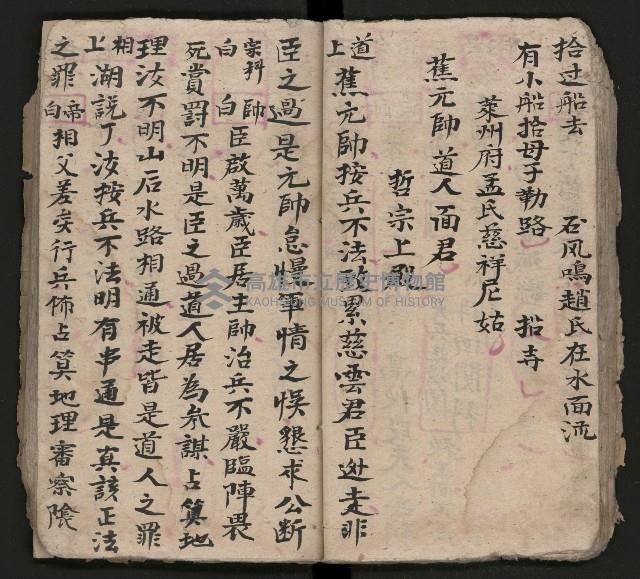 拾过船去　石风鳴趙氏在水面流
有小船拾母子勒路　拾寺
萊州府孟氏慈祥尼姑
蕉元帥道人面君
哲宗上殿
道上蕉元帥按兵不法致累慈雲君臣逃走非
臣之過是元帥怠慢軍情之悮懇求公断
宗白科帥白臣啟萬歲臣居主帥治兵不嚴臨陣畏
死賞罰不明是臣之過道人居為参謀占算地
理汝不明山后水路相通被走皆是道人之罪
相上湖説了汝按兵不法明有串通是真該正法
之罪帝白相父差矣行兵佈占算地理審察陰
高雄市立歷史博物館
KAOHSIUNG MUSEUM OF HISTORY